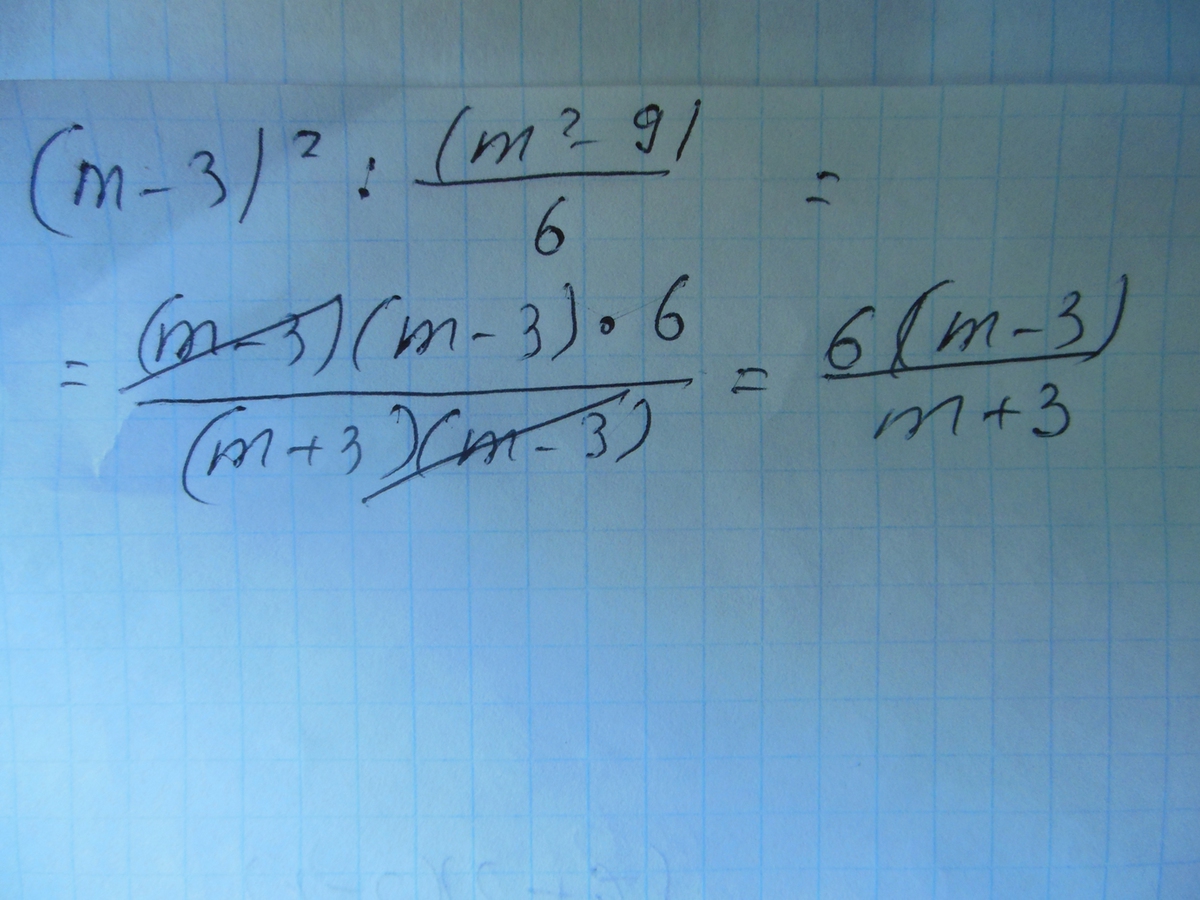 (m-3)² : (m²-9)/6 =
= (m-3)(m-3)·6/(m+3)(m-3) = 6(m-3)/m+3